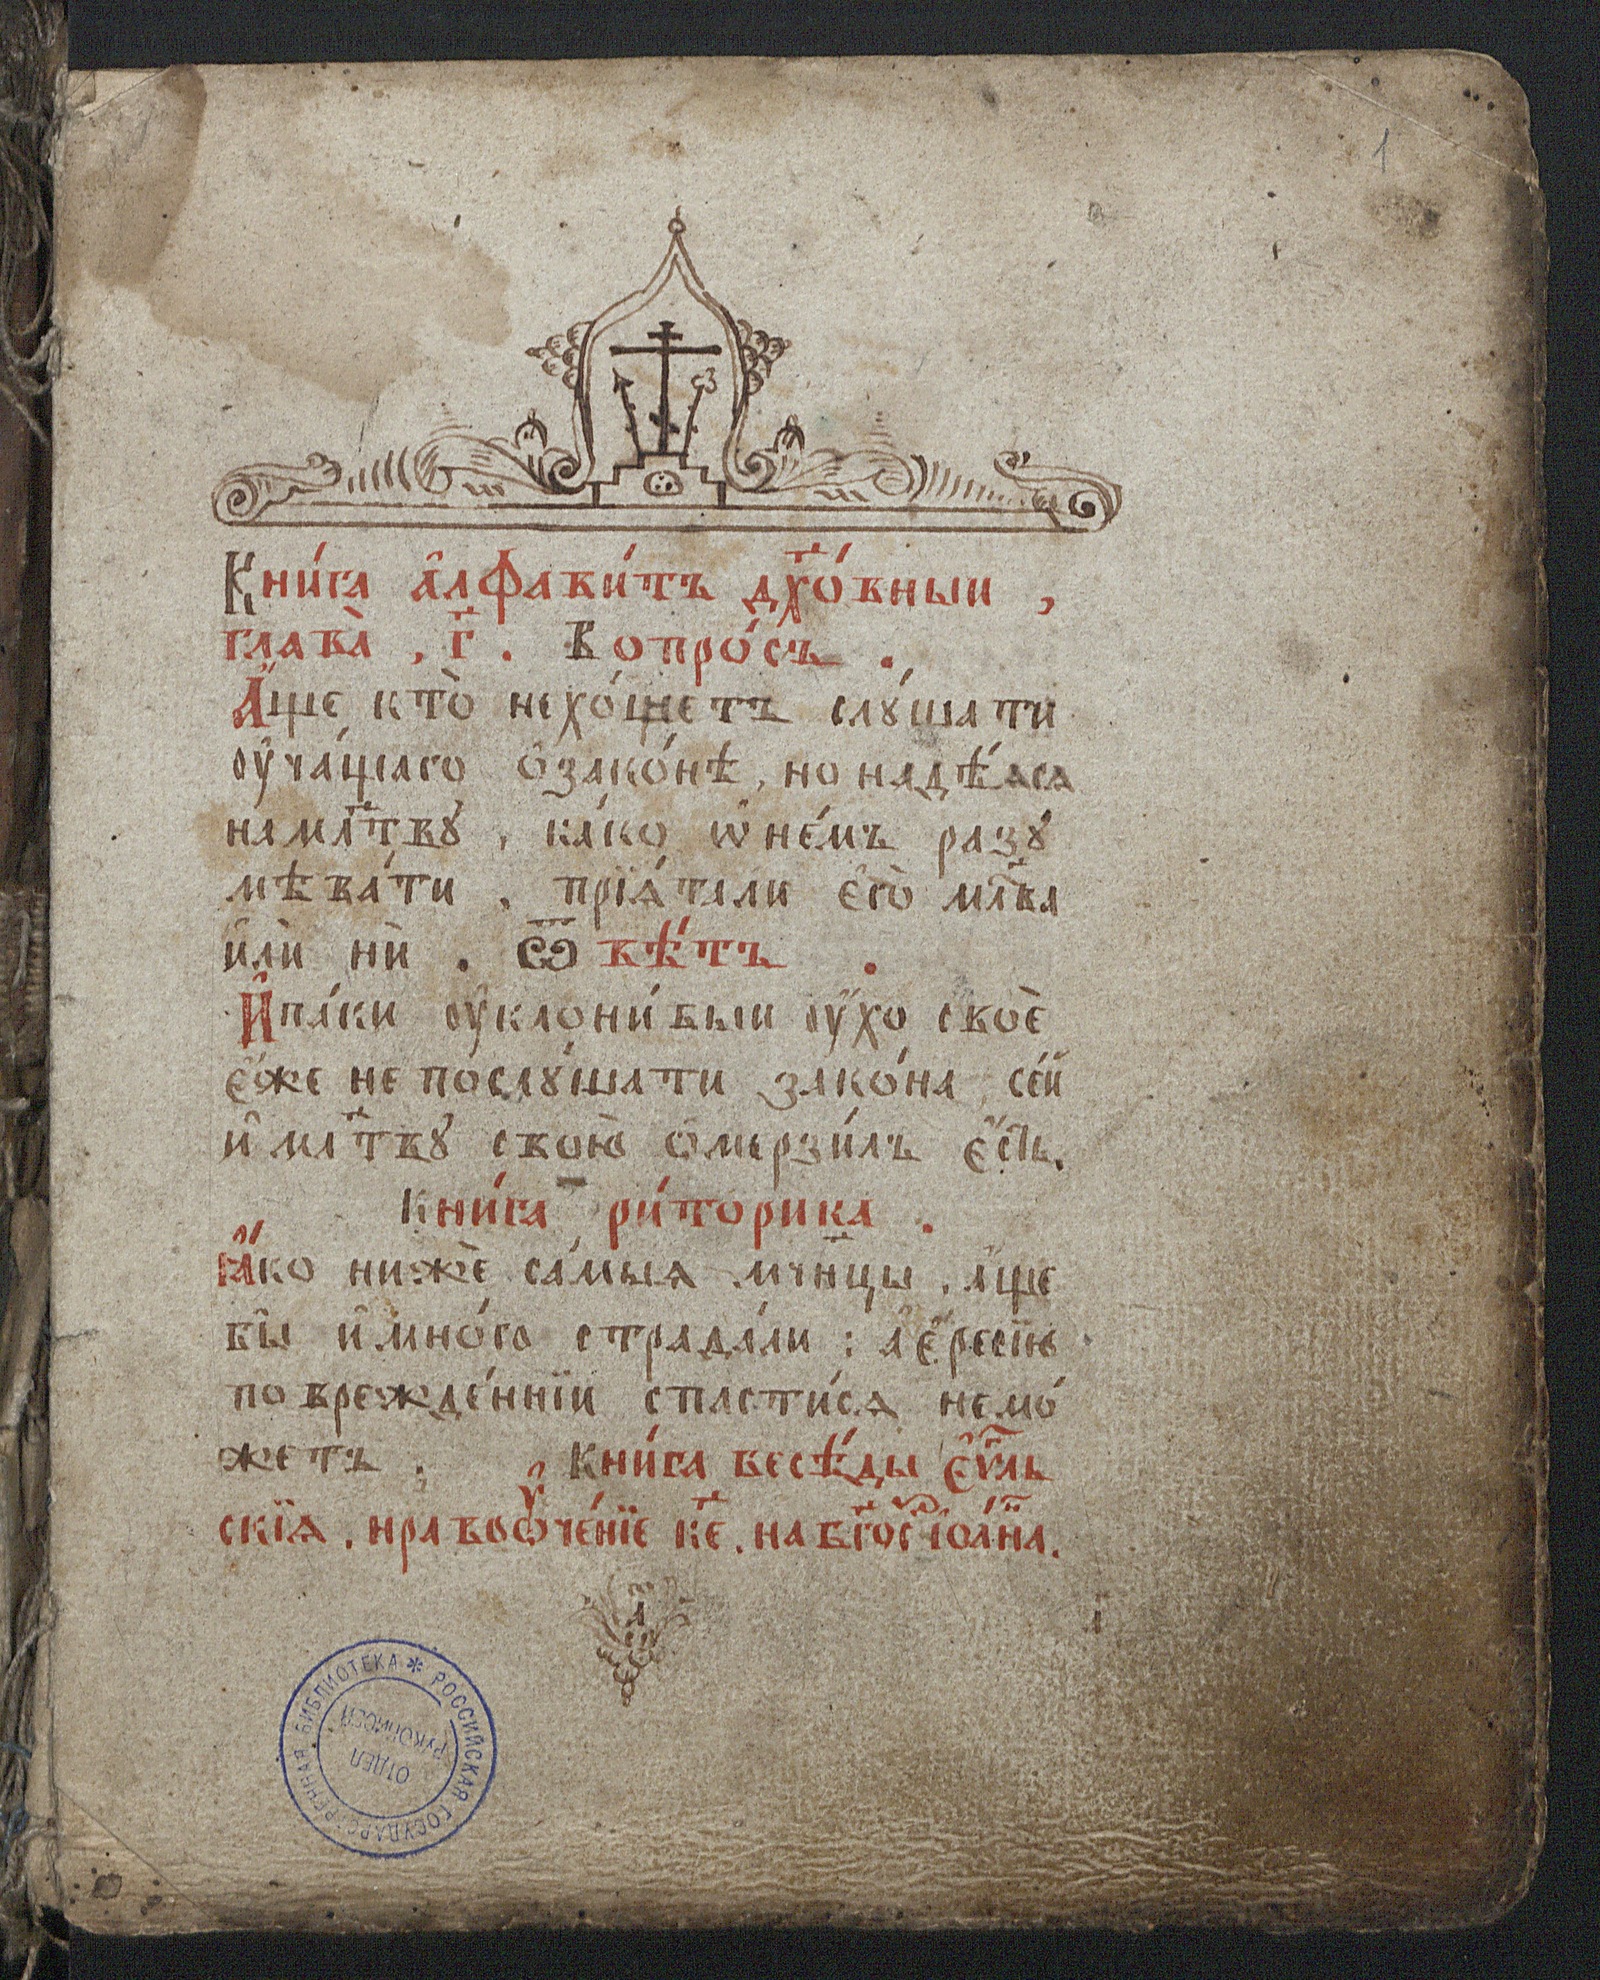 1
Кни́га а҆лфави́тъ дх҃о́вный ,
глава̀ , г҃ . Вопро́съ .
А҆́ще кто̀ нехо́щетъ слу́шати
ᲂу҆ча́щаго ѡ҆зако́нѣ , но надѣ́яся
намл҃тву , ка́ко ѡ҆не́мъ разꙋ
мѣва́ти . прїя́тали є҆го̀ мл҃ва
и҆лѝ нѝ . Ѿвѣ́тъ .
И҆па́ки ᲂу҆клони́вый ᲂу҆́хо своѐ
є҆́же не послꙋ́шати зако́на , се́й
и҆ мл҃твꙋ свою̀ ѡ҆мерзи́лъ є҆́сть .
Кни́га ри́торика .
Ꙗ҆́ко нижѐ са́мыя мч҃нцы , а҆́ще
бы и҆мно́го страда́ли : а҆є҆́ресїю
поврежде́ннїи спасти́ся немо́
жетъ . Кни́га бесѣ́ды є҆ѵ҃ль
скїя . нравоꙋче́нїе к҃є . на бг҃осл іѡа́нна .
а҃
РОССИЙСКАЯ ГОСУДАРСТВЕННАЯ БИБЛИОТЕКА *
ОТДЕЛ
РУКОПИСЕЙ